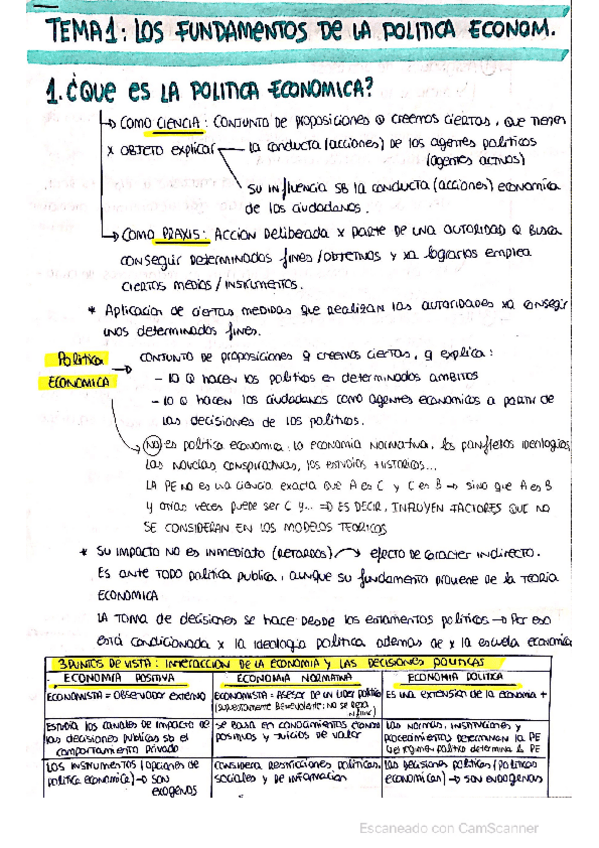 TEMA 1: LOS FUNDAMENTOS DE LA POLITICA ECONOM.
1. ¿QUE ES LA POLITICA ECONOMICA?
COMO CIENCIA: CONJUNTO DE PROPOSICIONES Q CREEMOS CIERTAS, QUE TIENEN
X OBJETO EXPLICAR
LA CONDUCTA (ACCIONES) DE LOS AGENTES POLITICOS
(AGENTES ACTIVOS)
SU INFLUENCIA SB LA CONDUCTA (ACCIONES) ECONOMICA
DE LOS CIUDADANOS.
COMO PRAXIS: ACCION DELIBERADA X PARTE DE UNA AUTORIDAD Q BUSCA
CONSEGUIR DETERMINADOS FINES / OBJETIVOS Y XA LOGRARLOS EMPLEA
CIERTOS MEDIOS / INSTRUMENTOS.
* Aplicacion de ciertas medidas que realizan las autoridades xa conseguir
unos determinados fines.
Politica
ECONOMICA
CONJUNTO DE PROPOSICIONES Q CREEMOS CIERTAS, Q EXPLICA:
- LO Q HACEN LOS POLITICOS EN DETERMINADOS AMBITOS
- LO Q HACEN LOS CIUDADANOS COMO AGENTES ECONOMICOS A PARTIR DE
LAS DECISIONES DE LOS POLITICOS.
NO es politica economica: la economia normativa, los panfletos ideologicos,
las novelas conspirativas, los estudios historicos...
LA PE NO ES UNA CIENCIA EXACTA QUE A ES C Y C ES B → SINO QUE A ES B
Y OTRAS VECES PUEDE SER C Y... ⇒ ES DECIR, INFLUYEN FACTORES QUE NO
SE CONSIDERAN EN LOS MODELOS TEORICOS
* SU IMPACTO NO ES INMEDIATO (RETARDOS) → EFECTO DE CARACTER INDIRECTO.
ES ANTE TODO POLITICA PUBLICA, AUNQUE SU FUNDAMENTO PROVIENE DE LA TEORIA
ECONOMICA
LA TOMA DE DECISIONES SE HACE DESDE LOS ESTAMENTOS POLITICOS → POR ESO
ESTÁ CONDICIONADA X LA IDEOLOGIA POLITICA ADEMAS DE X LA ESCUELA ECONOMICA
3 PUNTOS DE VISTA: INTERACCION DE LA ECONOMIA Y LAS DECISIONES POLITICAS
ECONOMIA POSITIVA
ECONOMISTA = OBSERVADOR EXTERNO
ESTUDIA LOS CANALES DE IMPACTO DE
LAS DECISIONES PUBLICAS SB EL
COMPORTAMIENTO PRIVADO
LOS INSTRUMENTOS (OPCIONES DE
POLITICA ECONOMICA) → SON
EXOGENOS
ECONOMIA NORMATIVA
ECONOMISTA = ASESOR DE UN LIDER POLITICO
(SUPUESTAMENTE BENEVOLENTE; NO SE DEJA
SE BASA EN CONOCIMIENTOS ECONOM
POSITIVOS Y JUICIOS DE VALOR
CONSIDERA RESTRICCIONES POLITICAS,
SOCIALES Y DE INFORMACION
ECONOMIA POLITICA
ES UNA EXTENSION DE LA ECONOMIA +
LAS NORMAS, INSTITUCIONES Y
PROCEDIMIENTOS DETERMINAN LA PE
(EL REGIMEN POLITICO DETERMINA LA PE
LAS DECISIONES POLITICAS (POLITICAS
ECONOMICAS) → SON ENDOGENAS
Escaneado con CamScanner